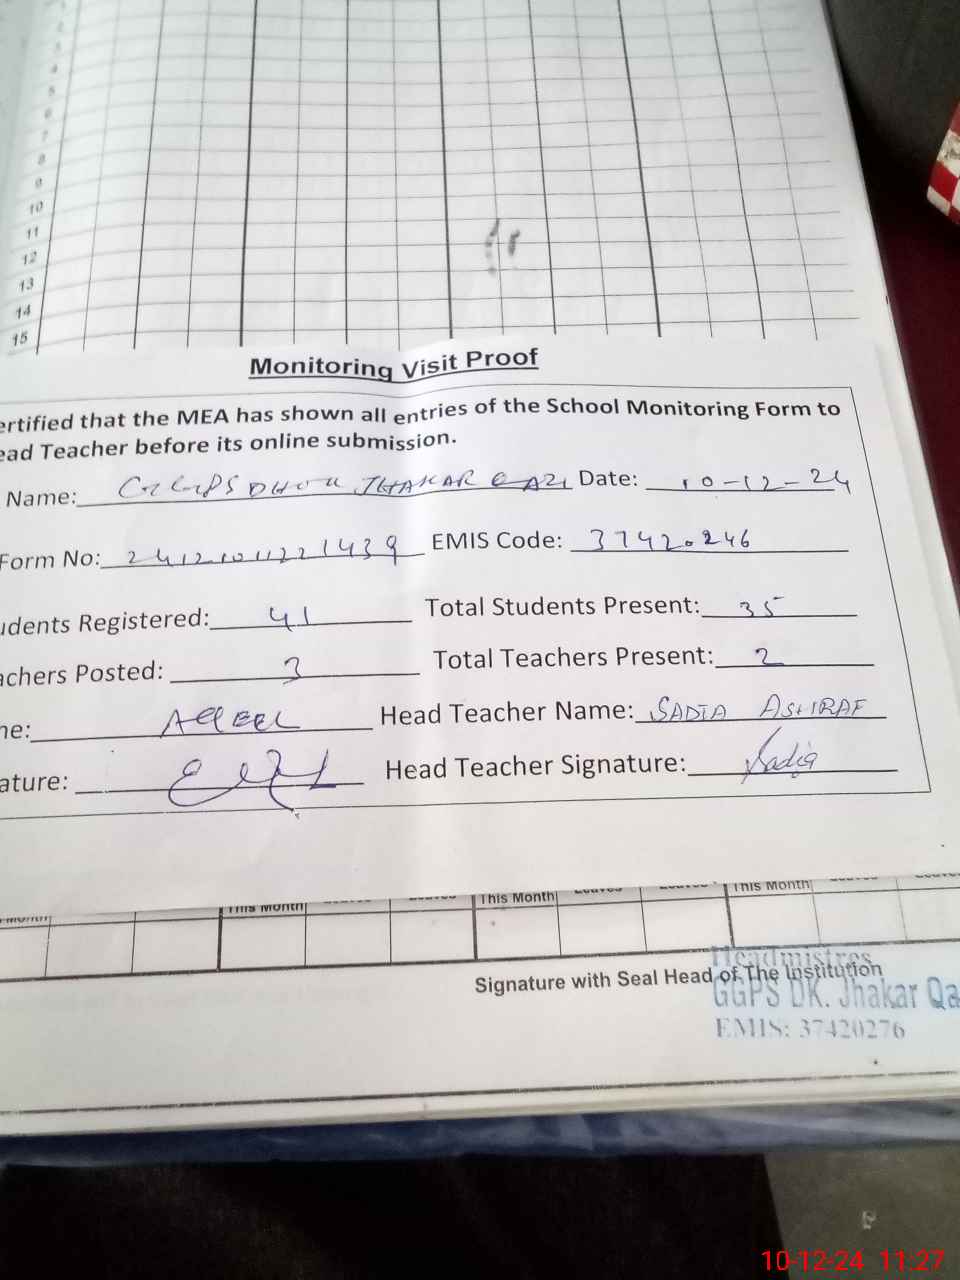 4
5
6
7
8
9
10
11
12
13
14
15
Monitoring Visit Proof
ertified that the MEA has shown all entries of the School Monitoring Form to
ead Teacher before its online submission.
Name: GGPS DHOK JHAKAR QAZI Date: 10-12-24
Form No: EMIS Code: 37420246
udents Registered: 41 Total Students Present: 35
achers Posted: 3 Total Teachers Present: 2
me: AQEEL Head Teacher Name: SADIA ASHRAF
ature: Head Teacher Signature: Sadia
This Month This Month This Month
Signature with Seal Head of The Institution
Headmistres
GGPS DK. Jhakar Qa
EMIS: 37420276
10-12-24 11:27